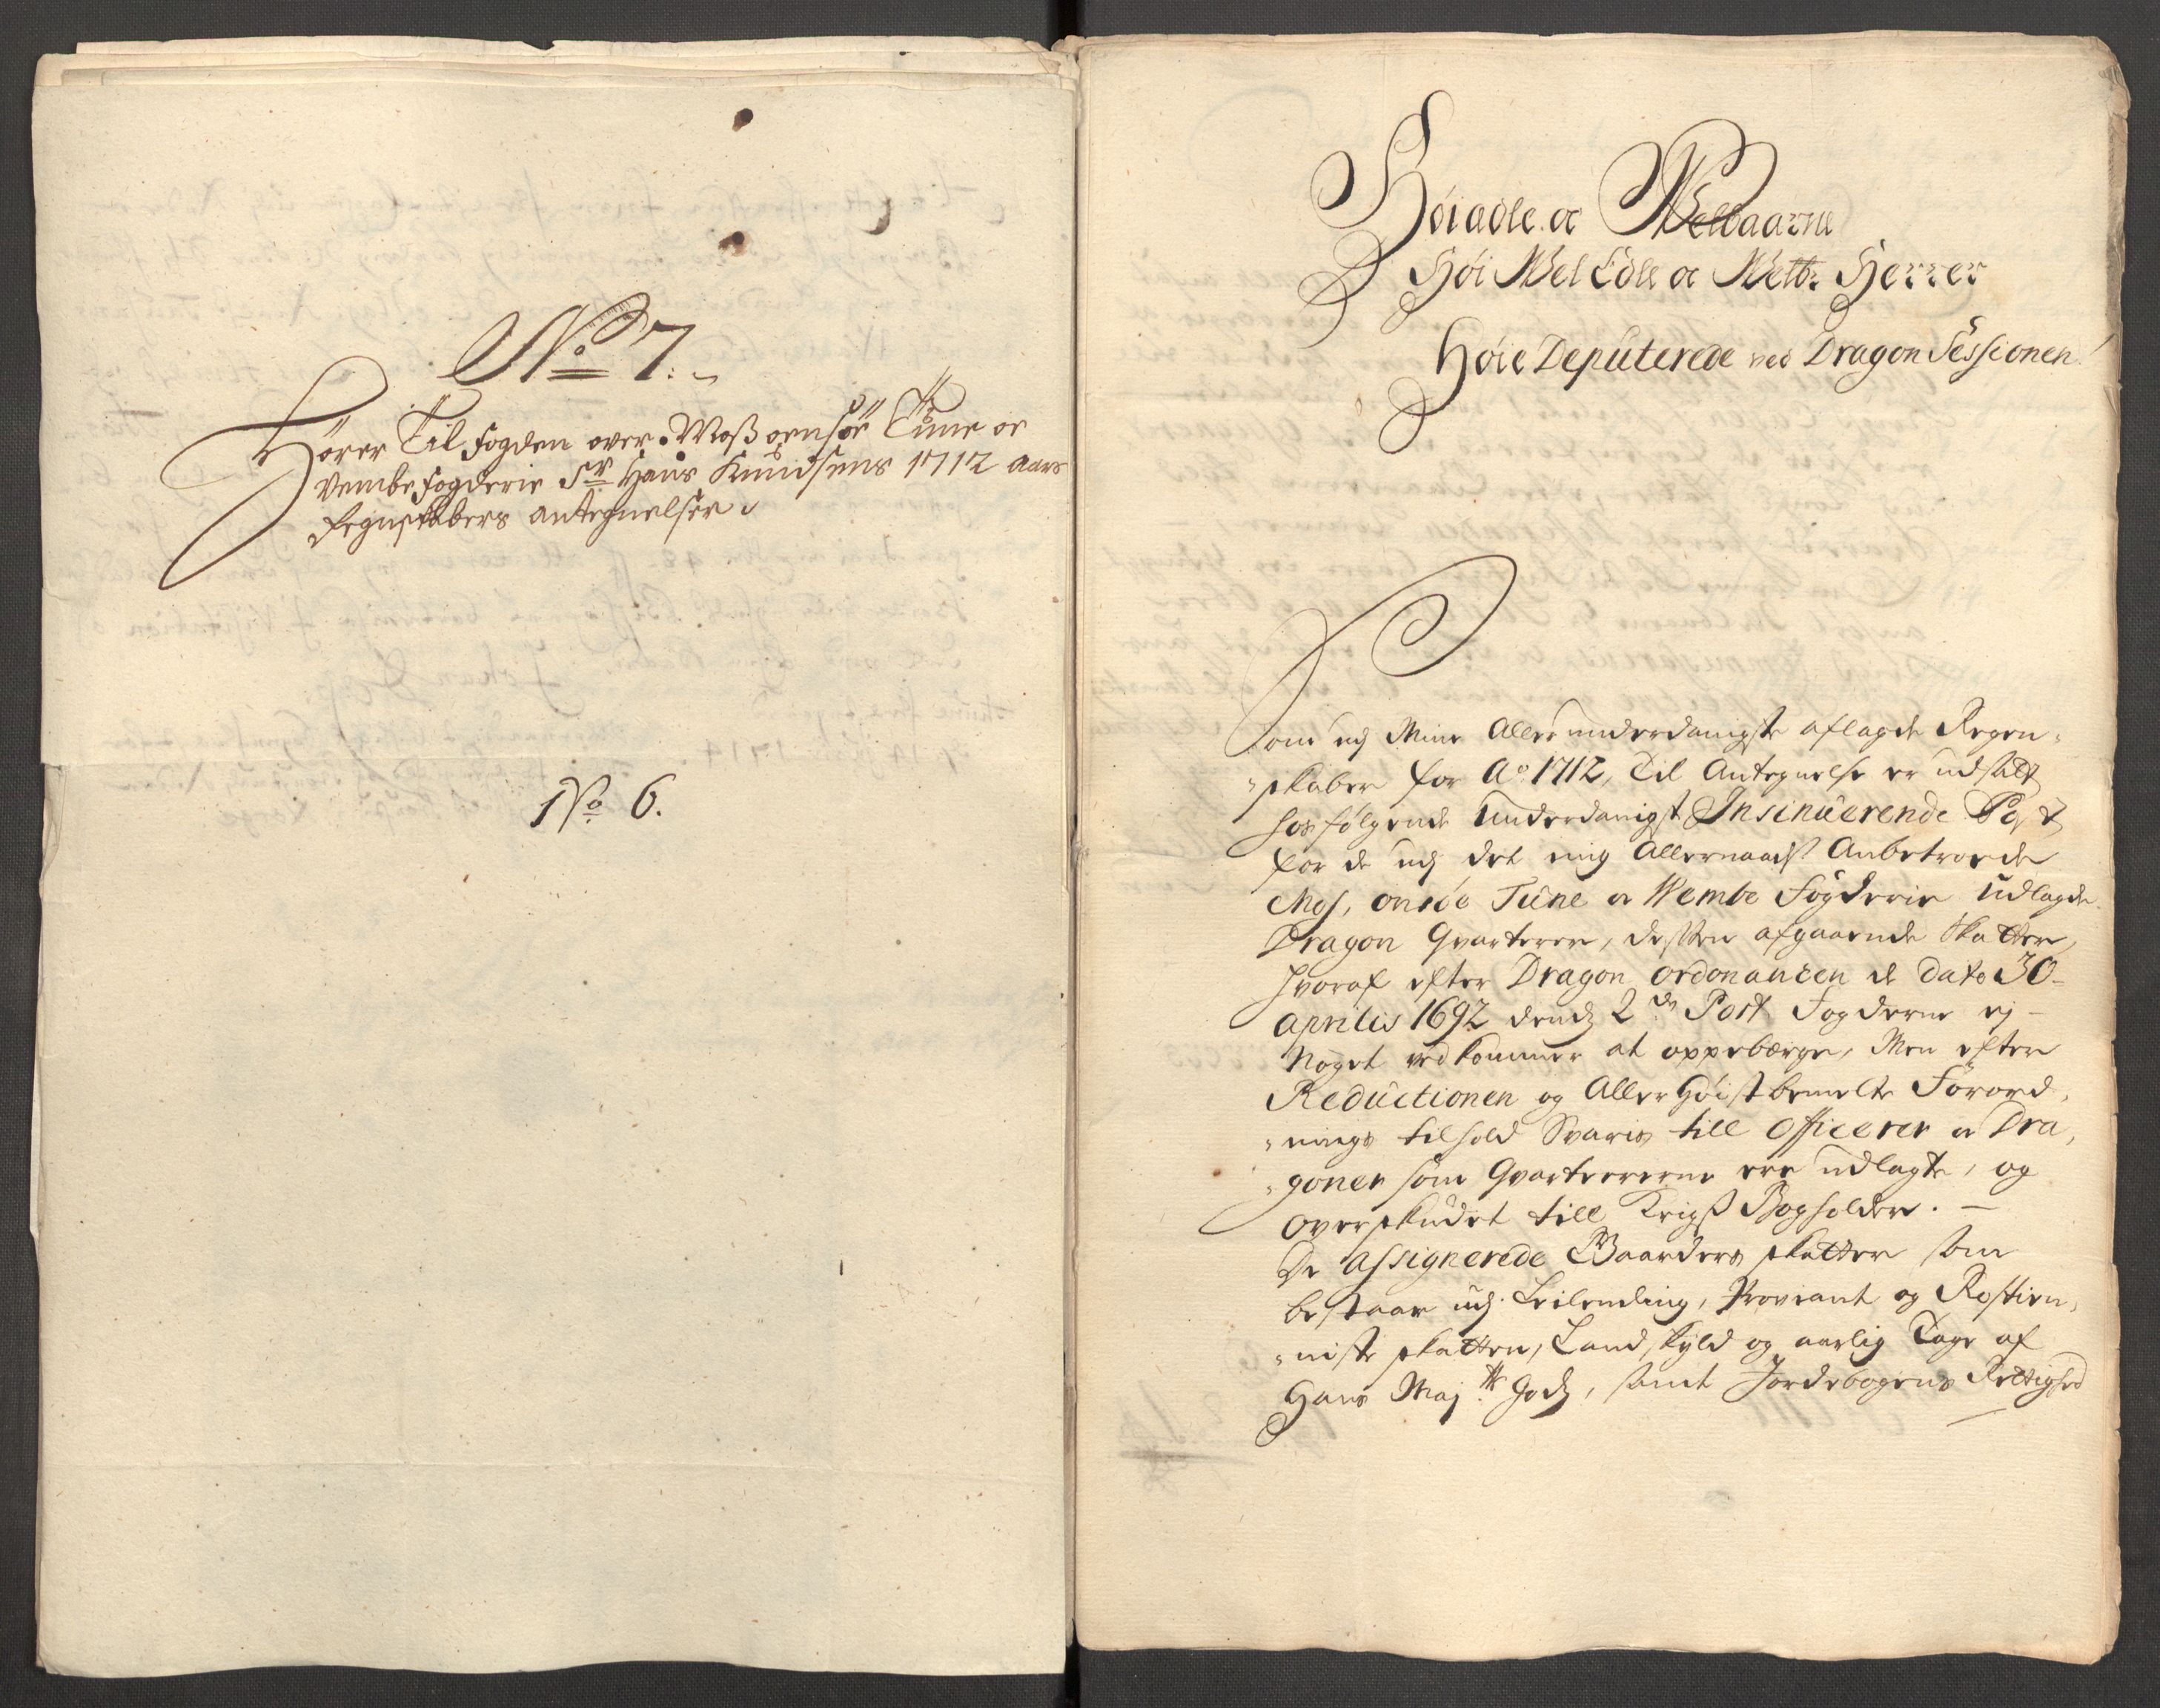 No 7.
Hører Til fogden over Moss oensøe Tune oc
Vembe fogderie Sr Hans Knudsens 1712 aars
Regnskabers antegnelser
No 6.
Høiædle oc Welbaarne
Høi Wel Edle oc Welb: Herrer
Høie Deputerede ved Dragon Sessionen
Som udj Mine Allerunderdanigste aflagde Regen-
skaber for Ao 1712, Til Antegnelse er udsatt
hosfølgende Underdanigst Insinuerende Post
for de udj det mig Allernaadst Anbetroede
Mos, onsöe Tune oc Wembe Fogderie Udlagde
Dragon Qvarterer, dessen afgaaende Skatter,
hvoraf efter Dragon ordonancen de dato 30
aprilis 1692 dends 2de Post Fogderne ej
Noget vedkommer at oppebærge, Men efter
Reductionen og Aller Høist bemelte Forord-
nings tilhold Svaris till Officerer oc Dra-
goner som Qvartererne ere udlagte, og
overskudet till Krigs Bogholder.
De assignerede Gaarders skatter som
bestaar udj Leilending, Proviant og Rostien-
niste skatten, Land,skyld og aarlig Tage af
Hans Maj.ts Gods, samt Jordebogens Rettighed